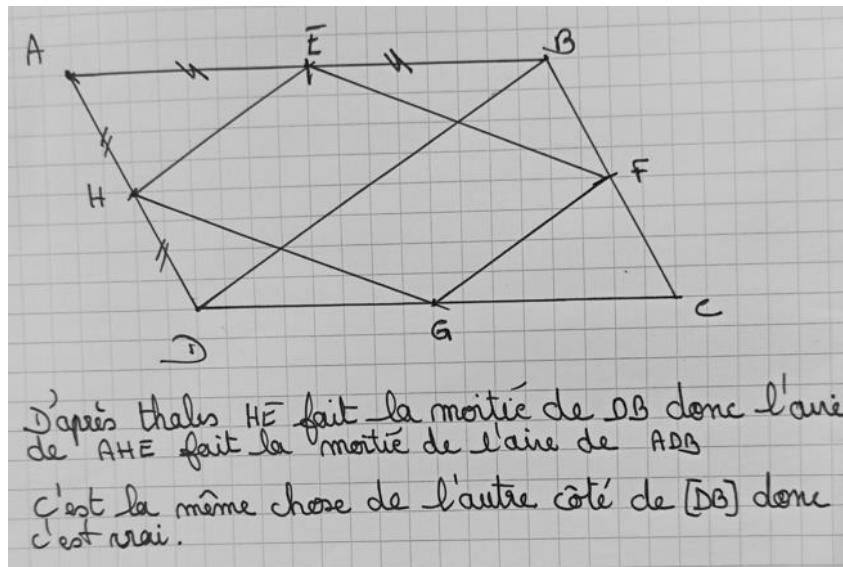 A E B
H F
D G C
D'après thales HE fait la moitié de DB donc l'aire
de AHE fait la moitié de l'aire de ADB
C'est la même chose de l'autre côté de [DB] donc
c'est vrai.